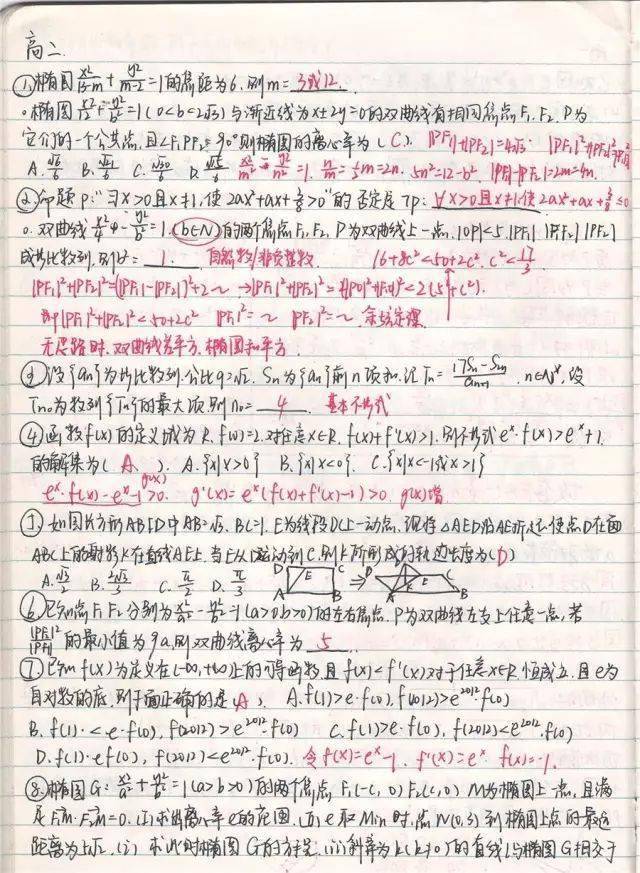 高二.
①椭圆x²/(15-m)+y²/(m-2)=1的焦距为6,则m=3或12.
。椭圆x²/12+y²/b²=1(0<b<2√3)与渐近线为x±2y=0的双曲线有相同焦点F₁.F₂.P为
它们的一个公共点,且∠F₁PF₂=90°则椭圆的离心率为(C). |PF₁|+|PF₂|=4√3.
A. B. C. D. x²/m²-y²/n²=1. 5n²=12-b². |PF₁|-|PF₂|=2m=4n.
②命题p:"∃x>0且x≠1,使2ax²+ax+3/8>0"的否定是¬p:∀x>0且x≠1,使2ax²+ax+3/8≤0
。双曲线x²/4-y²/b²=1.(b∈N)的两个焦点F₁.F₂,P为双曲线上一点,|OP|<5.|PF₁| |F₁F₂| |PF₂|
成等比数列,则b²=1. 自然数/非负整数. 16+8c²<50+2c². c²<17/3.
|PF₁|²+|PF₂|²=(|PF₁|-|PF₂|)²+2~→|PF₁|²+|PF₂|²=
即|PF₁|²+|PF₂|²<50+2c² |PF₁|²=~ |PF₂|²=~.余弦定理
无思路时.双曲线差平方.椭圆和平方.
③设{an}为等比数列.公比q=√2. Sn为{an}前n项和.记Tn=(17Sn-S2n)/an+1. n∈N*,设
Tn₀为数列{Tn}的最大项.则n₀=4. 基本不等式
④函数f(x)的定义域为R.f(0)=2.对任意x∈R.f(x)+f'(x)>1.则不等式eˣ·f(x)>eˣ+1.
的解集为(A.). A.{x|x>0} B.{x|x<0}. C.{x|x<-1或x>1}
eˣ·f(x)-eˣ-1>0. g(x) g'(x)=eˣ(f(x)+f'(x)-1)>0. g(x)增.
如图长方形ABCD中AB=√3.BC=1.E为线段DC上一动点.现将△AED沿AE折起使点D在面
ABC上的射影K在直线AE上.当E从D运动到C.则K所形成的轨迹长度为(D)
A.√3/2 B.2√3/3 C.π/2 D.π/3 D C E A B D E C K A B
⑥已知点F₁F₂分别为x²/a²-y²/b²=1(a>0 b>0)的左右焦点.P为双曲线左支上任意一点.若
|PF₂|²/|PF₁|的最小值为9a.则双曲线离心率为5.
⑦已知f(x)为定义在(-∞,+∞)上的可导函数,且f(x)<f'(x)对于任意x∈R恒成立.且e为
自对数的底.则下面正确的是A). A.f(1)>e·f(0),f(2012)>e²⁰¹²·f(0)
B.f(1)·<e·f(0),f(2012)>e²⁰¹²·f(0) C.f(1)>e·f(0).f(2012)<e²⁰¹².f(0)
D.f(1)·ef(0),f(2012)<e²⁰¹²·f(0). 令f(x)=eˣ-1. f'(x)=eˣ f(x)=-1.
⑧椭圆G:x²/a²+y²/b²=1(a>b>0)的两个焦点F₁(-c,0)F₂(c,0)M为椭圆上一点.且满
足F₁M·F₂M=0.(1)求出离心率e的范围.(2)e取Min时.点N(0,3)到椭圆上点的最远
距离为5√2.(i)求此时椭圆G的方程.(ii)斜率为k(k≠0)的直线l与椭圆G相交于